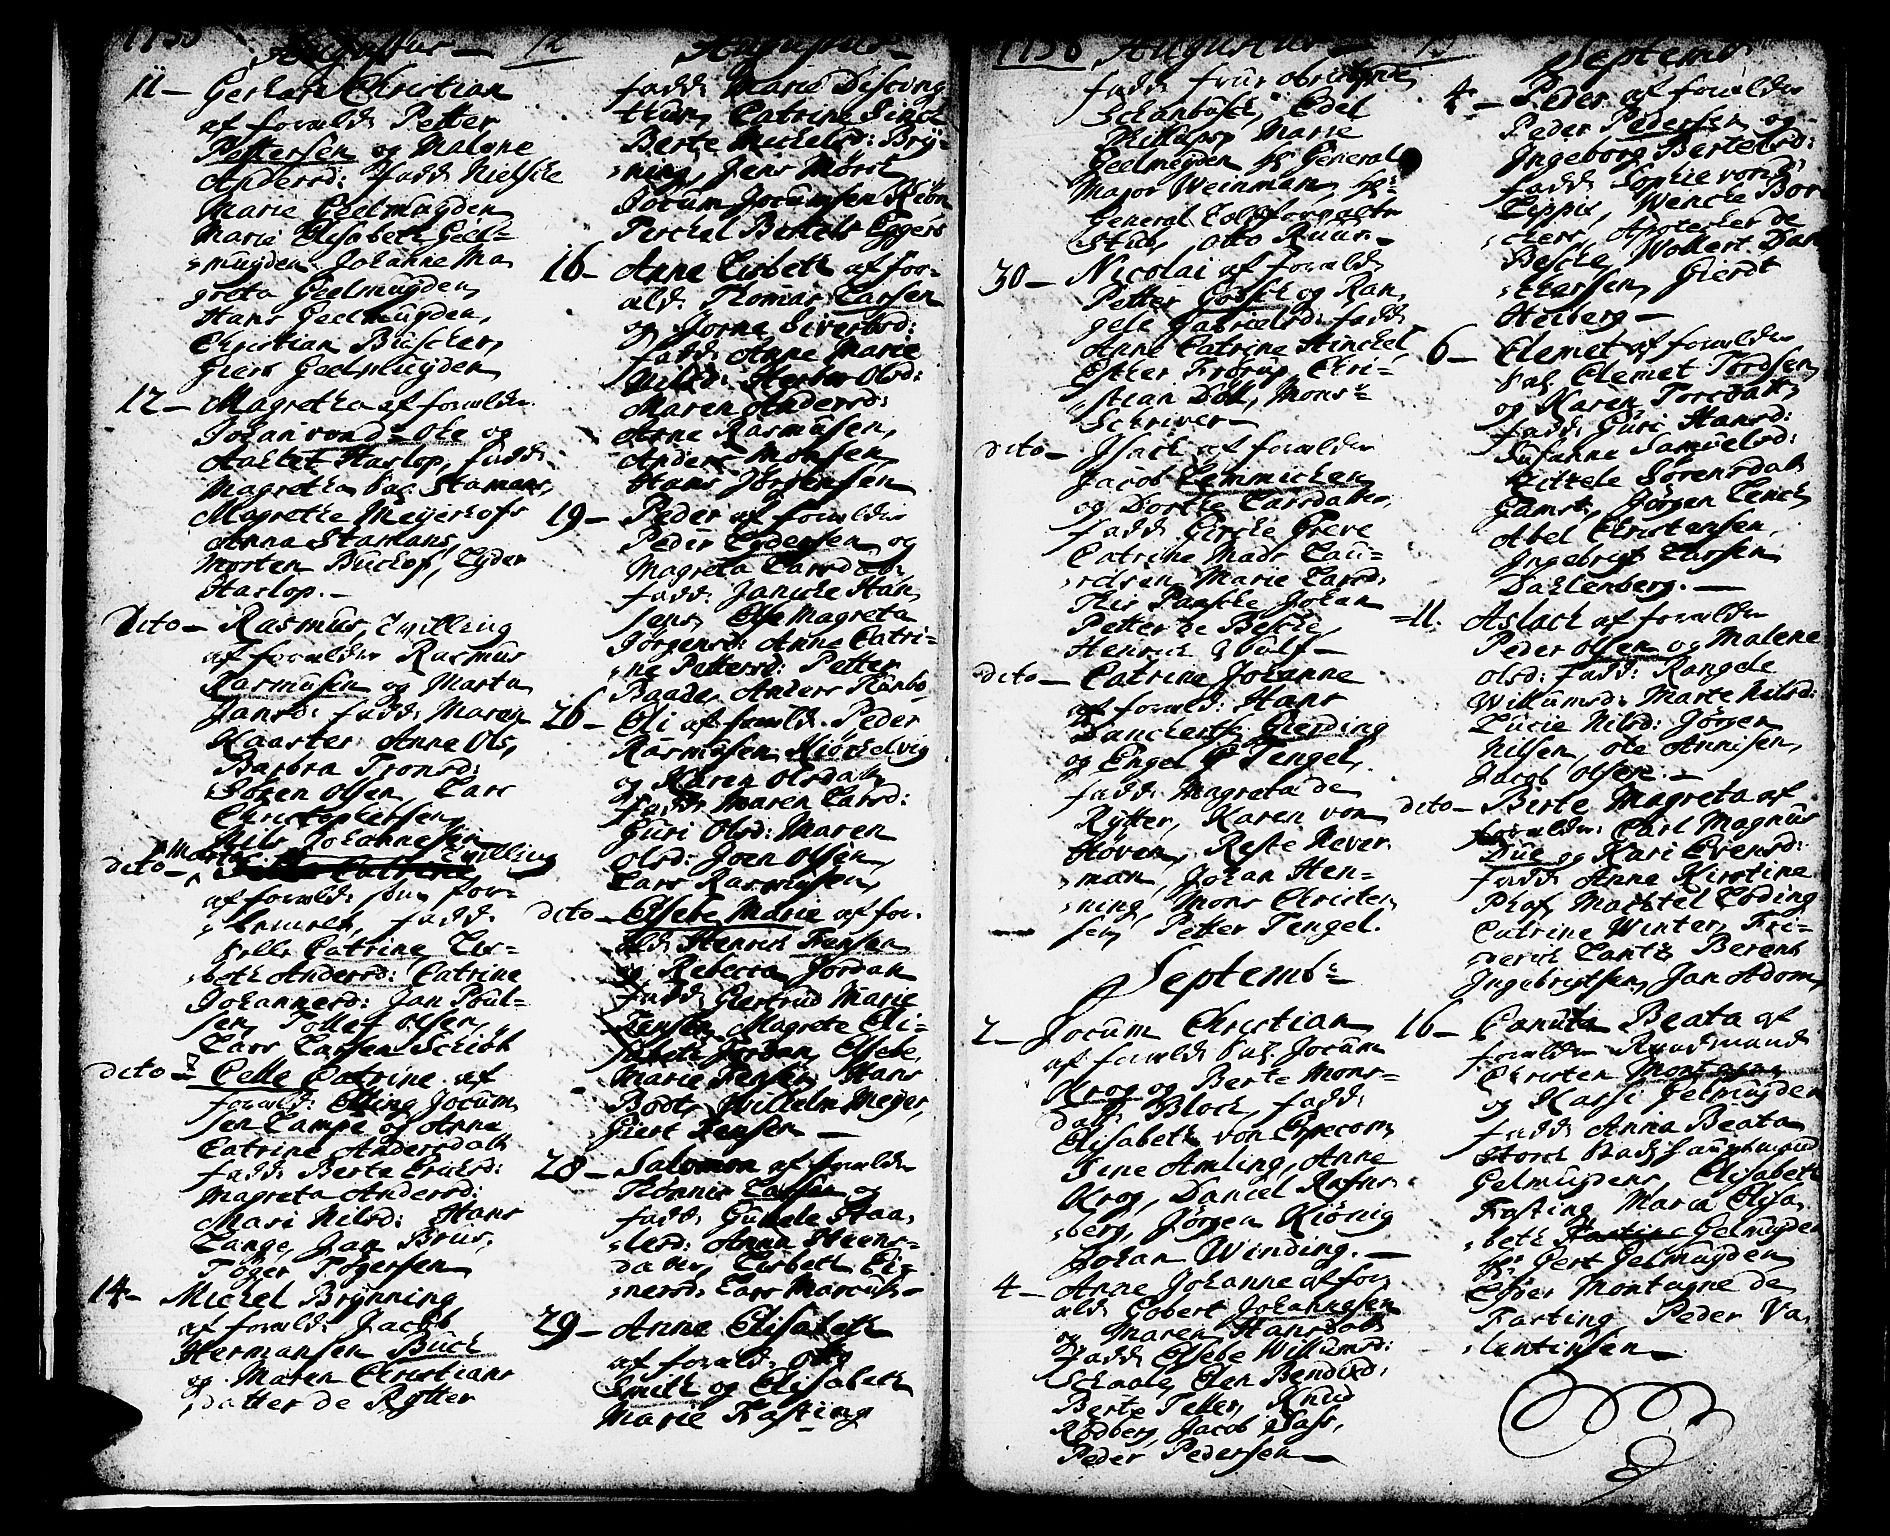 Augustus —
11 — Gerhard Christian
af foræld: Petter
Pettersen og Malene
Andersd: fadd: Nielsche
Marie Geelmuyden
Marie Elisabeth Geel=
muyden Johanne Ma
greta Geelmuyden,
Hans Geelmuyden,
Christian Büscher,
Giert Geelmuyden
12 — Magretha af forælder
Johan von d= Ohe og
Aahlet Haslop, fadd:
Magretha Stamans,
Magrethe Meyerhofs
Anna Stamans,
Morten Buchof, Eyder
Haslop. —
Dito — Rasmus, tvilling
af forælder Rasmus
Rasmusen og Marta
Jansd: fadd: Maren
Kaarter Anne Ols,
Barbra Tronsd:
Søren Olsen Lars
Christophersen,
Nils Johannesen
dito — Marta tvilling
af foræld: som for=
fadd:
Pelle Catrine Lis=
beth Andersd: Catrine
Johannesd: Jan Poul=
sen, Tollef Olsen,
Lars Larsen Schiøt
dito — Celle Catrine af
foræld: Elling Jocum
sen Lampe og Anne
Catrine Andersdatt
fadd: Berte Ericksd:
Magreta Andersd:
Mari Nilsd: Hans
Lange, Jan Brüs,
Tøger Tøgersen
14 — Michel Brynning
af foræld: Jacob
Hermansen Buch
og Maren Christians
datter de Rytter
Augustus —
fadd: Maria Discing
thun, Catrine Sinch
Berte Michelsd: Bry=
ning, Jens Mørch
Jocum Jocumsen Kiøn
Perchel Bertels Eggers
16 — Anne Lisbeth af for=
æld: Thomas Larsen
og Jorne Siversd:
fadd: Anne Marie
Nilsd: Herber Olsd:
Maren Andersd:
Arne Rasmusen,
Anders Monsen
Hans Jørgensen
19 — Peder af forælder
Peder Pedersen og
Magreta Larsdatt:
fadd: Janiche Han
sens, Else Magreta
Jørgensd: Anne Catri=
ne Pettersd: Petter
Baade, Anders Tønbo
26 — Eli af foræld: Peder
Rasmusen Kiørchelvig
og Karen Olsdatt
fadd: Maren Larsd:
Guri Olsd: Maren
Olsd: Joen Olsen,
Lars Rasmusen,
dito — Elsebe Marie af for=
æld: Henrich Jensen
og Rebecca Jordan
fadd: Giertrud Marie
Jensen, Magrete Eli=
sabeth Jordan, Elsebe
Marie Jensen Hans
Bødt, Wilhelm Meyer,
Giert Hansen —
28 — Salomon af forælder
Tønnis Larsen og
fadd: Gunele Traa,
lersd: Anna Heens=
datter, Lisbeth Ei=
nersd: Lars Marcus —
29 — Anne Elisabeth
af foræld: Otto
Smith og Elisabeth
Marie Fasting
1756 Augustus —
fadd: frue Obristine
Schanboth, Edel
Phillips, Marie
Geelmuyden hr General
Major Weinman, hr:
General Toldforvalter
Stub, Otto Ruus —
30 — Nicolai af foræld:
Petter Gørsch og Ran,
gele Gabrielsd: fadd:
Anne Catrine Hinckel,
Esther Trorup, Chri=
stian Döll, Mons:
Schriver —
dito — Isach af forælder
Jacob Lemmichen
og Dorthe Larsdatter,
fadd: Girthe Greve
Catrine Mads Lau=
rdsen Marie Larsd:
This Paasche Johan
Petter de Besche,
Henrich Wulf —
dito — Catrine Johanne
af foræld: Hans
Danchertsen Gierding
og Engel P Tengel,
fadd: Magreta de
Rytter, Karen von
Hoven, Reste Never
man, Johan Hen=
ning, Mons Christen
sen, Petter Tengel.
Septemb:
2 — Jocum Christian
af foræld: Sal: Jocum
Krog og Berte Mons=
datt: Bloch, fadd:
Elisabeth von Erpecom,
Lene Amling, Anne
Krog, Daniel Refns=
berg, Jørgen Kiønig
Johan Winding. —
4 — Anne Johanne af for
æld: Gobert Johannesen
og Maren Hansdatt
fadd: Elsebe Willumsd:
Schaale, Elen Bendixd:
Berte Peter, Knud
Rødberg, Jacob Sass,
Peder Pedersen —
Septemb:
4 — Peder af forælder
Peder Pedersen og
Ingeborg Bertelsd:
fadd: Sophie von d:
Lippe, Wenche Bor
chers, Apotecker de
Besche, Wollert Dan
chersen, Gierdt
Heiberg —
6 — Clemet af forælder
Sal: Clemet Tordsen
og Karen Torsdatt
fadd: Guri Hansd:
Susanne Samuelsd:
Kittele Sørensdatt
Gamst, Jørgen Lerch
Abel Christensen,
Ingebregt Larsen
Dahlenberg. —
11. Aslach af forælder
Peder Olsen og Malene
Olsd: fadd: Rangele
Willumsd: Marte Nilsd:
Lucie Nilsd: Jørgen
Nilsen, Ole Annisen,
Jacob Olsen. —
dito — Berte Magreta af
forælder: Carl Magnus
Düe og Kari Evensd:
fadd: Anne Kirstine
Phaf, Machtel Coding
Catrine Winter, Fri=
derich Lantz, Berent
Ingebregtsen, Jan Adam,
16 — Canuta Beata af
forælder Raadmand
Christen Montagne
og Kassi Gelmuyden
fadd: Anna Beata
Storch
Gelmuydens, Elisabeth
Fasting Maria Elisa,
beth Gelmuyden
hr: Gert Gelmuyden
Montagne de
Fasting, Peder Va
lentinsen —